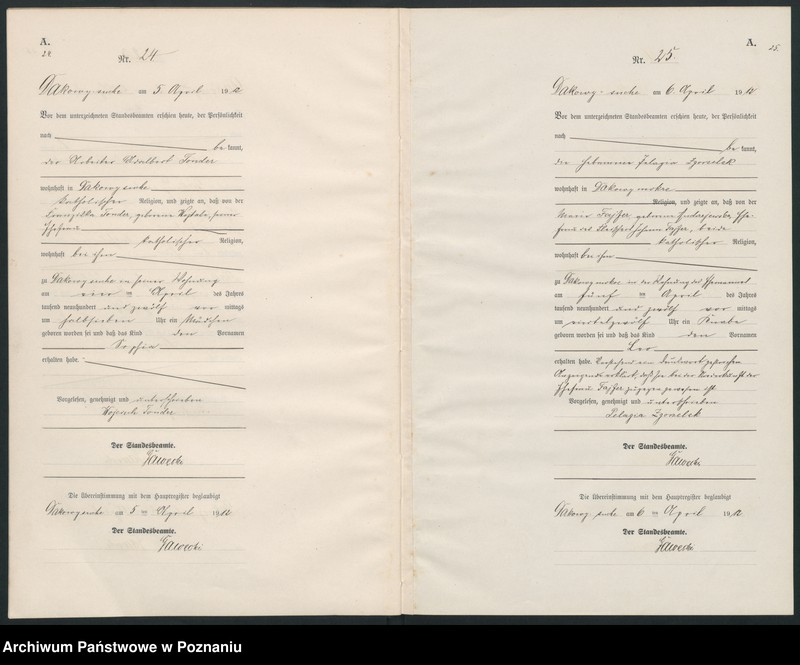 A.
24
Nr. 24
Dakowy suche am 5 April 1912
Vor dem unterzeichneten Standesbeamten erschien heute, der Persönlichkeit
nach
be kannt,
der Arbeiter Adalbert Tonder
wohnhaft in Dakowy suche
katholischer Religion, und zeigte an, daß von der
Tonder, geborene seiner
Ehefrau
katholischer Religion,
wohnhaft bei ihm
zu Dakowy suche in seiner Wohnung
am vier ten April des Jahres
tausend neunhundert und zwölf vor mittags
um halb sieben Uhr ein Mädchen
geboren worden sei und daß das Kind den Vornamen
Sophia
erhalten habe.
Vorgelesen, genehmigt und unterschrieben
Wojciech Tonder
Der Standesbeamte.
Die Übereinstimmung mit dem Hauptregister beglaubigt
Dakowy suche am 5 ten April 1912
Der Standesbeamte.
A.
25.
Nr. 25.
Dakowy-suche am 6 April 1912
Vor dem unterzeichneten Standesbeamten erschien heute, der Persönlichkeit
nach
be kannt,
die Hebamme Pelagia
wohnhaft in Dakowy mokre
Religion, und zeigte an, daß von der
Maria geborene Ehe-
frau des beide
katholischer Religion,
wohnhaft bei ihm
zu Dakowy mokre in der Wohnung des Ehemannes
am fünf ten April des Jahres
tausend neunhundert und zwölf vor mittags
um viertelzwölf Uhr ein Knabe
geboren worden sei und daß das Kind den Vornamen
Leo
erhalten habe. Vorstehend ein Druckwort gestrichen
Anzeigende erklärt, daß sie bei der Niederkunft der
Ehefrau zugegen gewesen ist
Vorgelesen, genehmigt und unterschrieben
Pelagia
Der Standesbeamte.
Die Übereinstimmung mit dem Hauptregister beglaubigt
Dakowy suche am 6 ten April 1912
Der Standesbeamte.
Archiwum Państwowe w Poznaniu